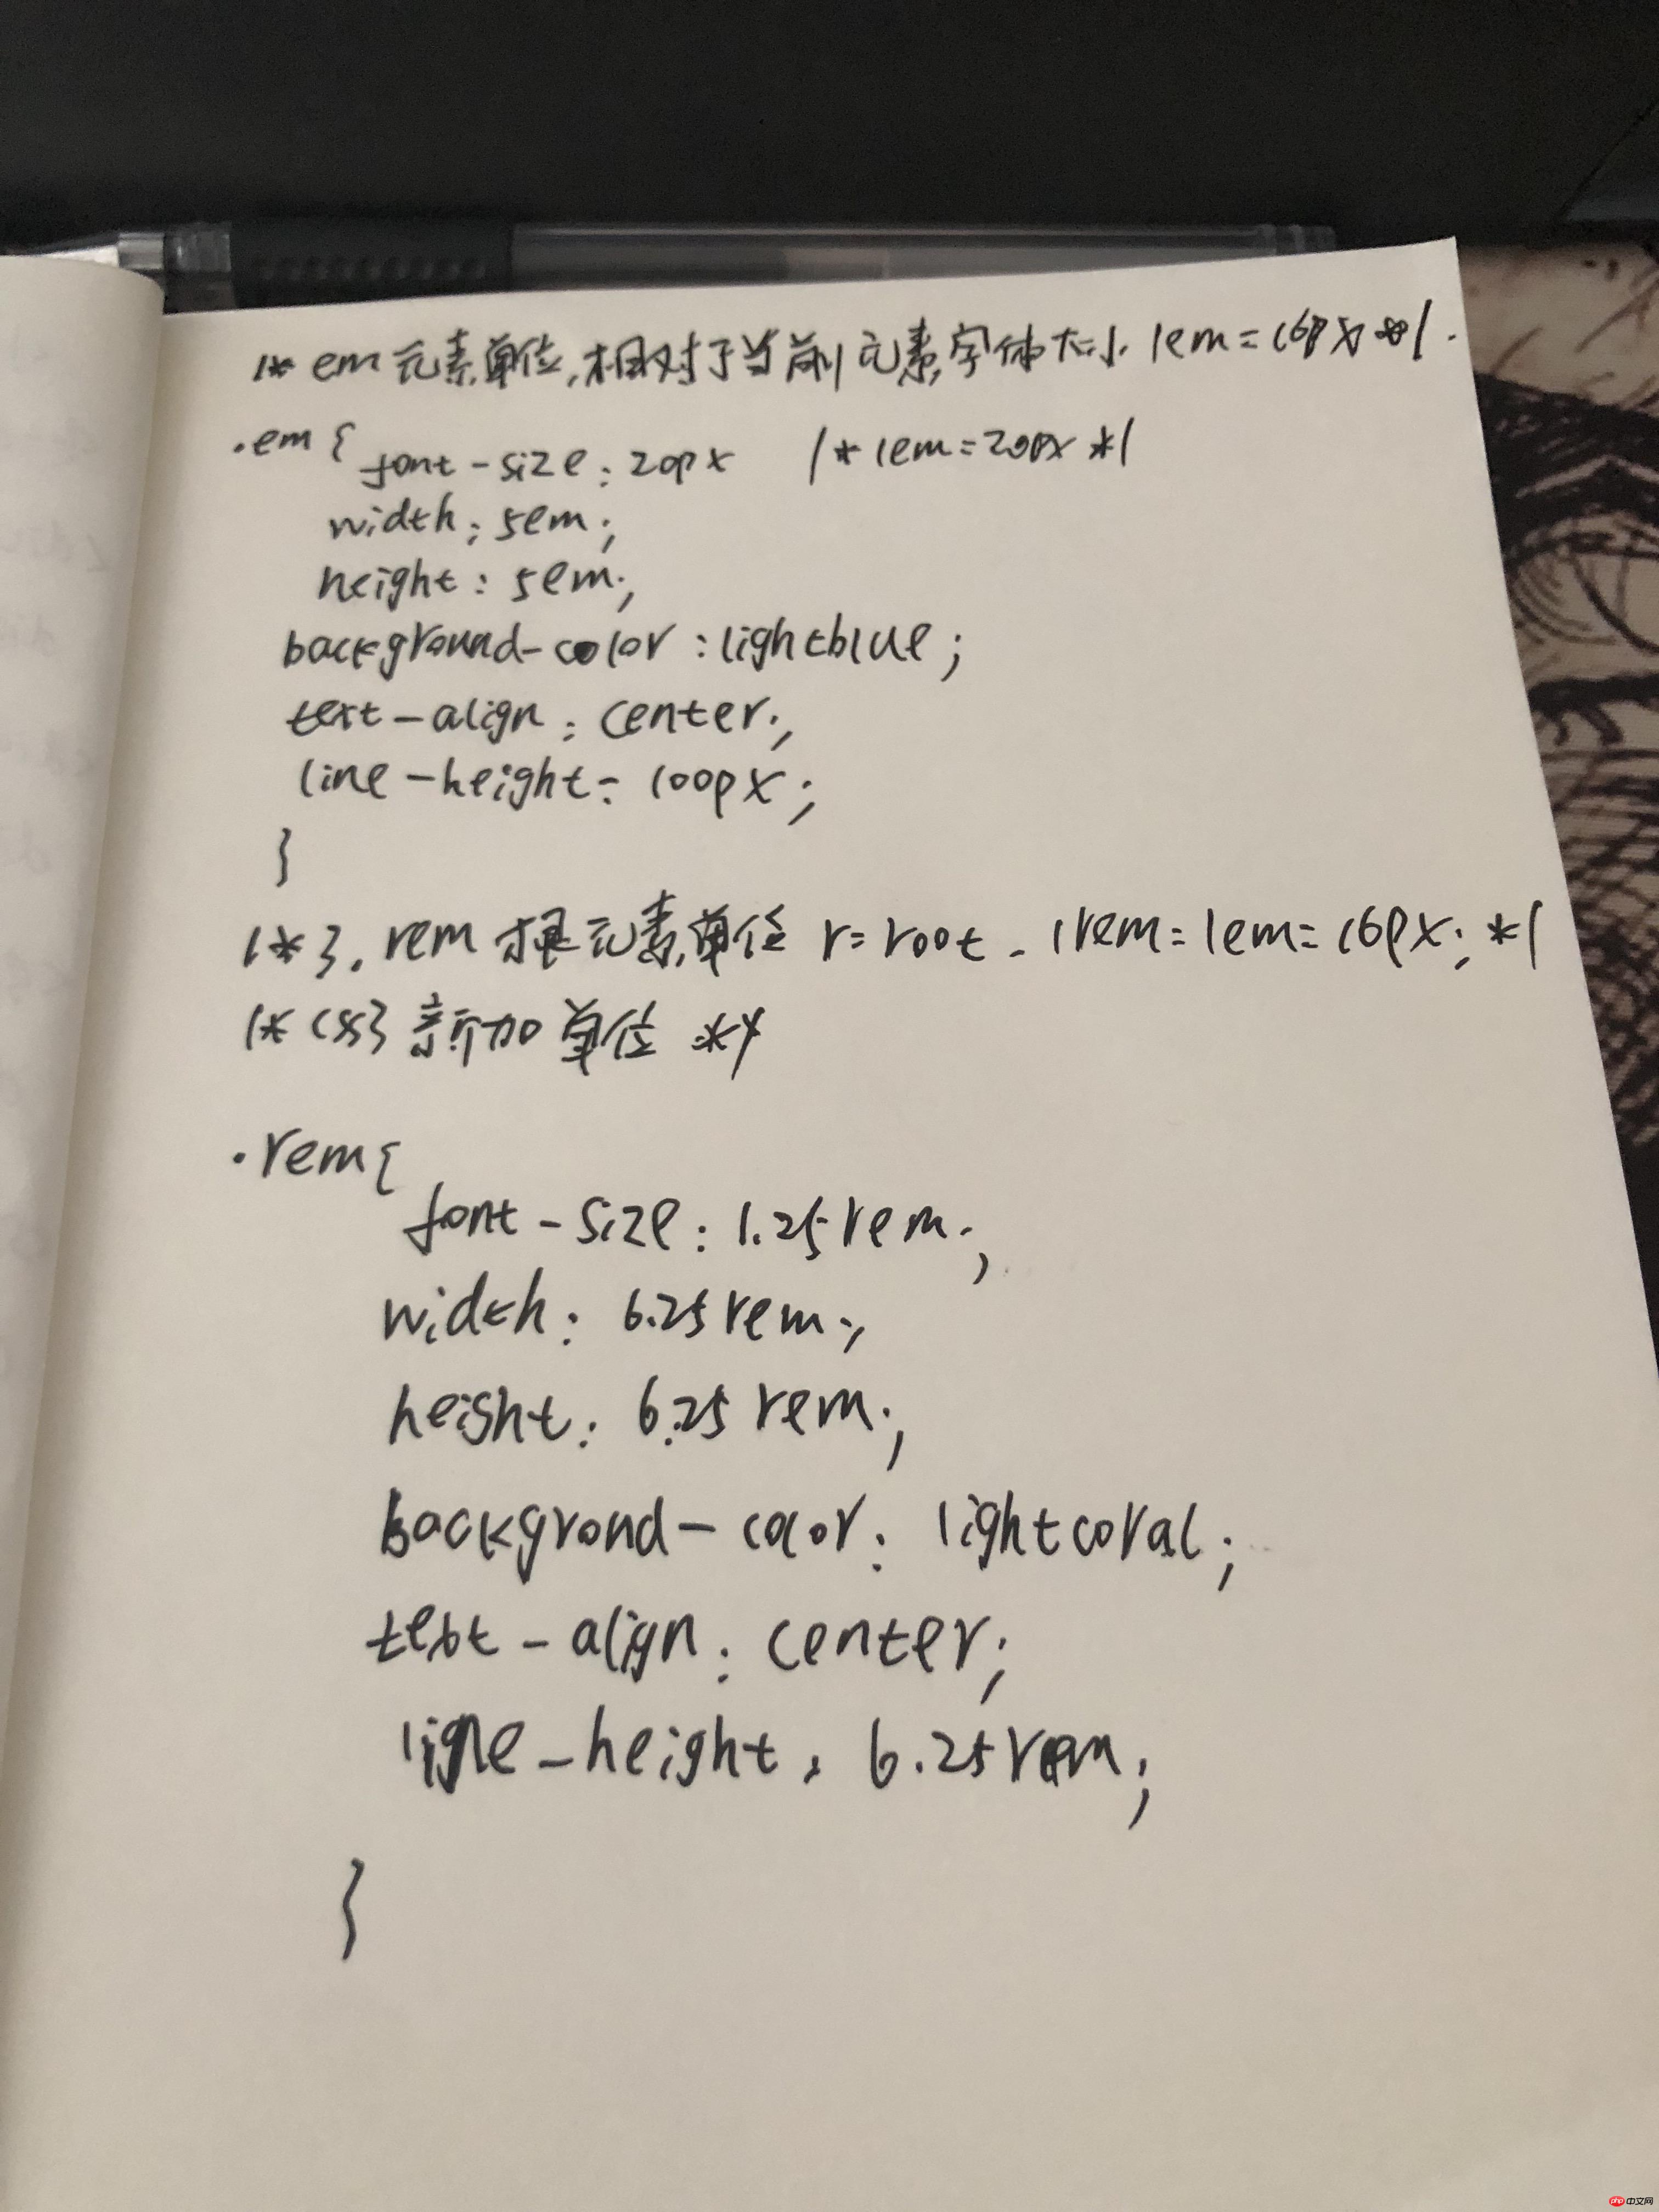 /* em 元素单位,相对于当前元素字体大小 1em=16px */.
.em{ font-size:20px /* 1em=20px */
width:5em;
height:5em;
background-color:lightblue;
text-align:center;
line-height:100px;
}
/* 3.rem 根元素单位 r=root. 1rem=1em=16px; */
/* css3 新加单位 */
.rem{
font-size:1.25rem;
width:6.25rem;
height:6.25rem;
backgrond-color:lightcoral;
text-align:center;
line-height:6.25rem;
}
php中文网